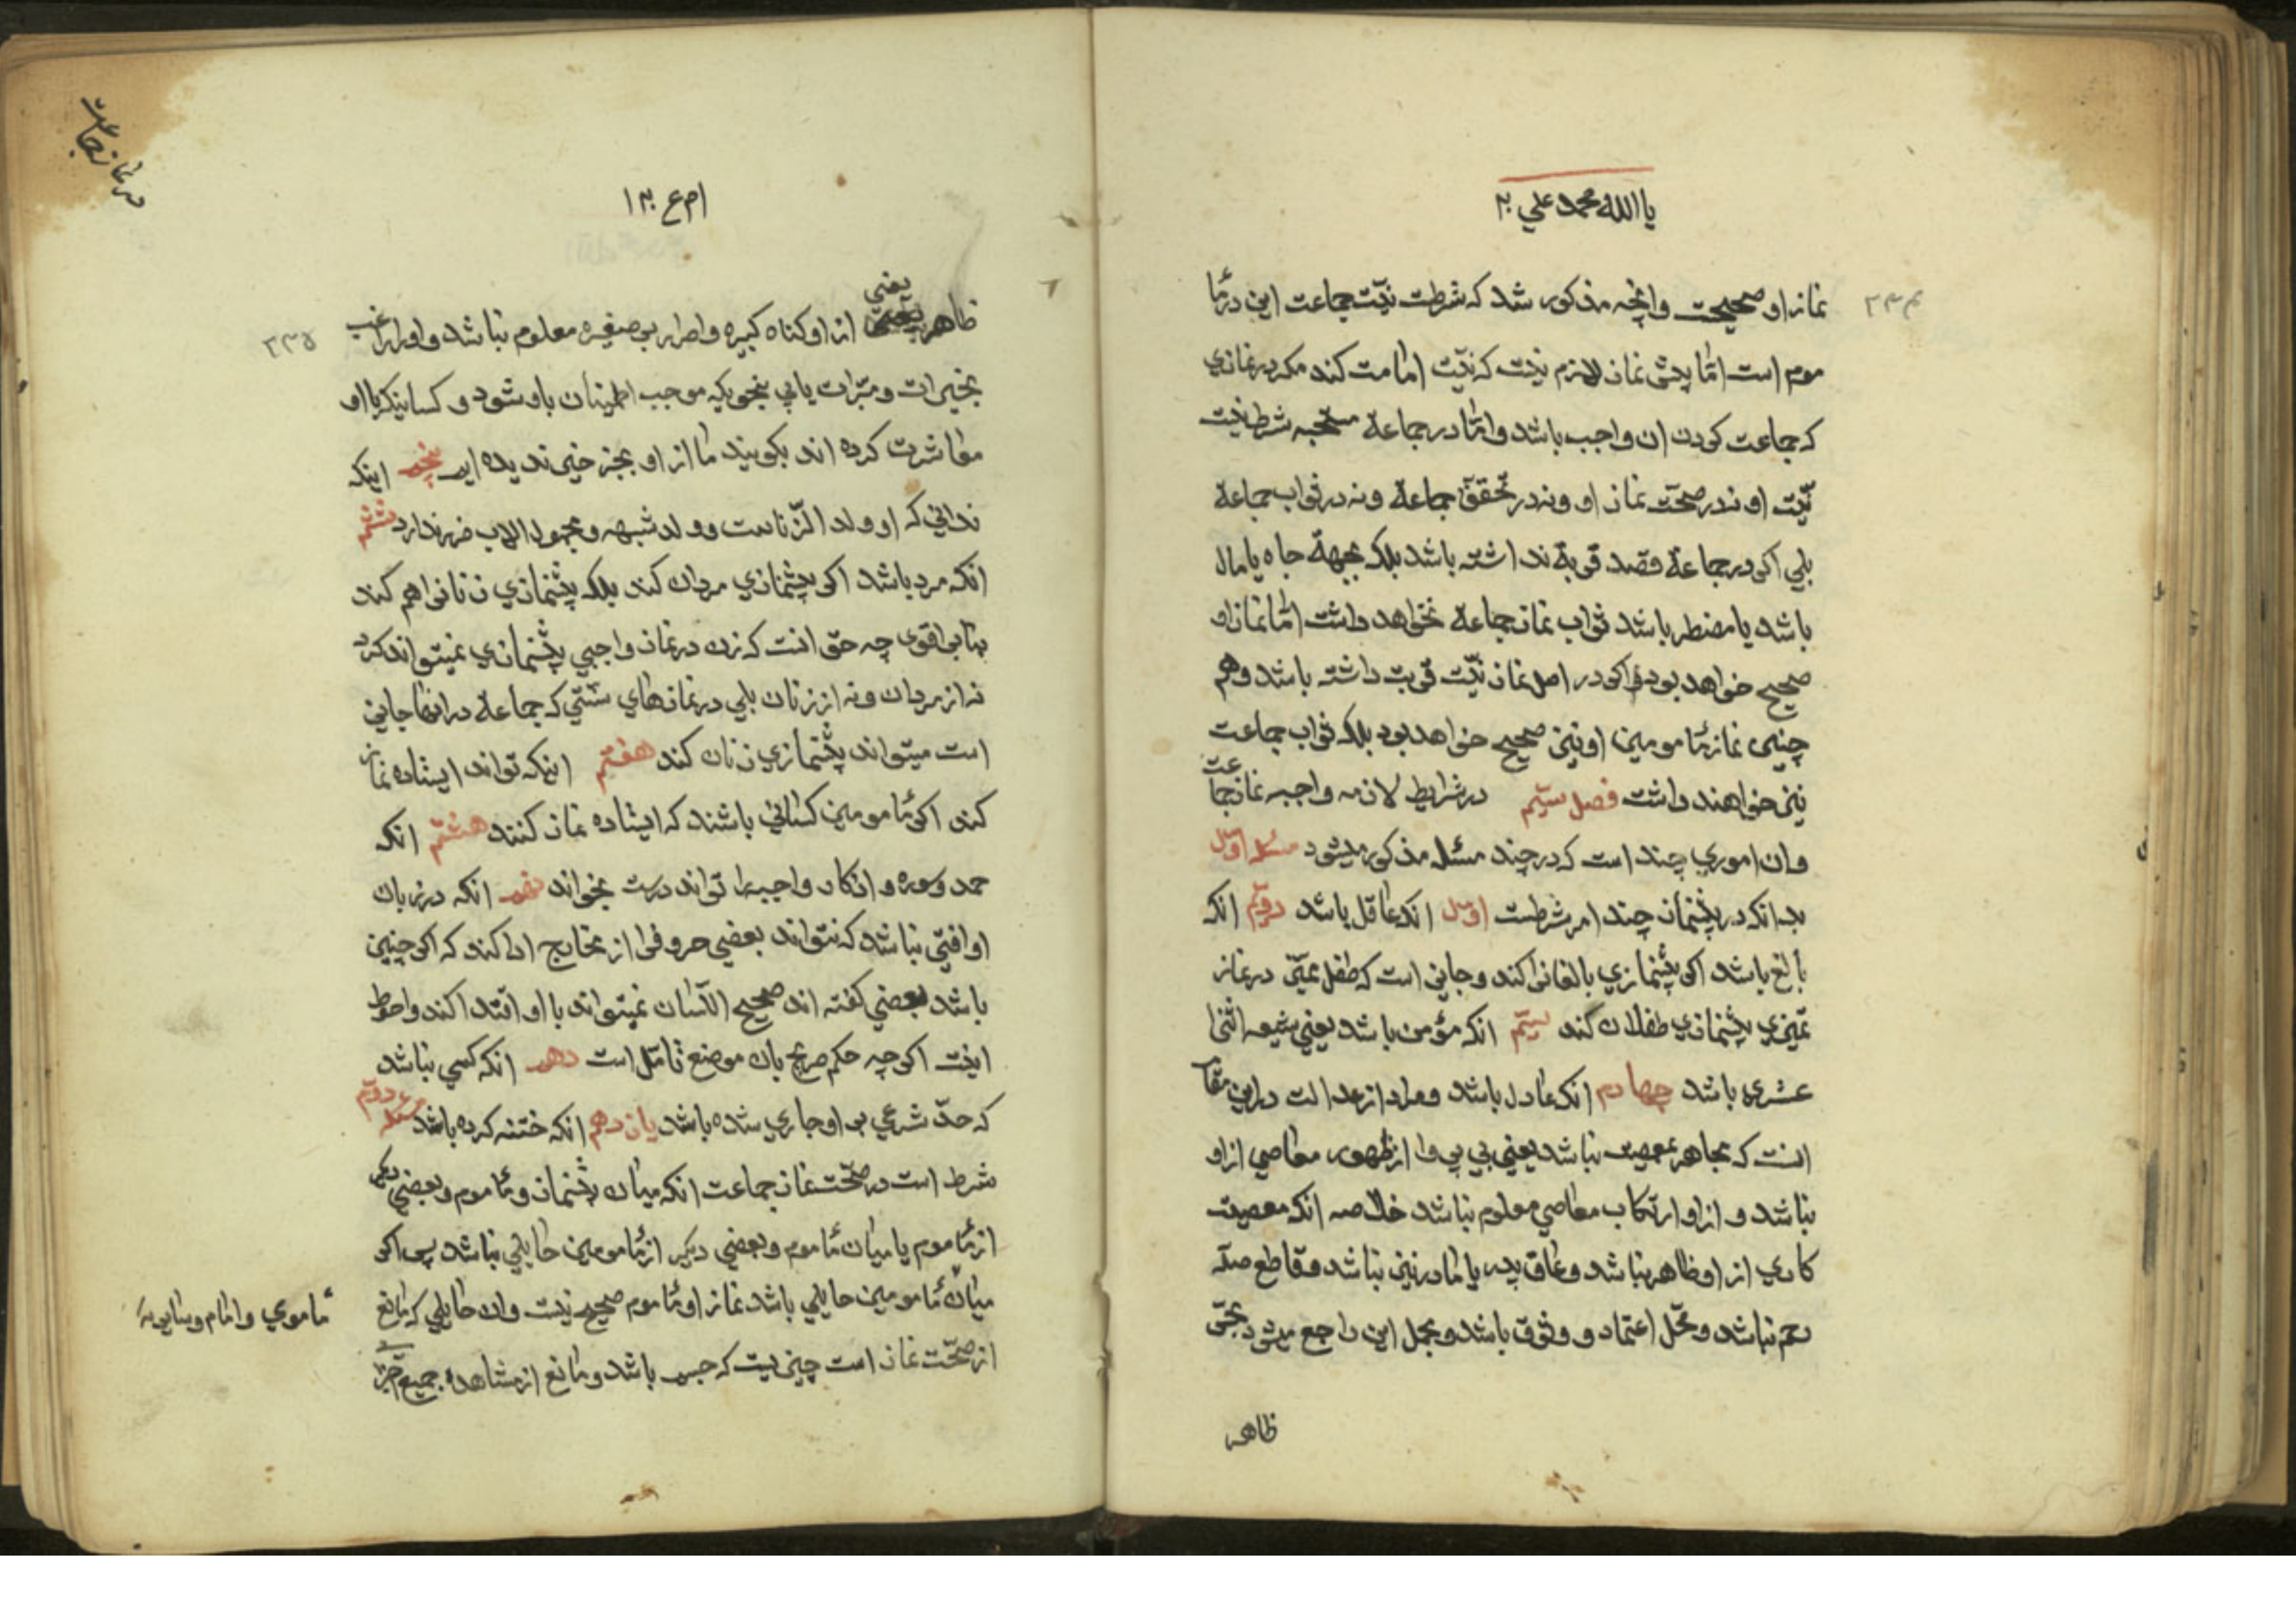 یا الله محمد علی ۲
۲۳۴
نماز او صحیحست وانچه مذکور شد که شرطست نیّت جماعت این در مٔا
موم است امّا پیش نماز لازم نیست که نیّت امامت کند مکر در نمازی
که جماعت کردن ان واجب باشد وامّا در جماعة مستحبه شرط نیست
نیّت او نه در صحّت نماز او ونه در تحقق جماعة ونه در ثواب جماعة
بلی اکر در جماعة قصد قربة نداشته باشد بلکه بجهة جاه یا مال
باشد یا مضطر باشد ثواب نماز جماعة نخواهد داشت امّا نماز او
صحیح خواهد بود اکر در اصل نماز نیّت قربت داشته باشد وهم
چنین نماز مٔامومین او نیز صحیح خواهد بود بلکه ثواب جماعت
نیز خواهند داشت فصل سیّم در شرایط لازمه واجبه نماز جماعت
وان اموری چند است که در چند مسئله مذکور میشود مسئله اوّل
بدانکه در پیشنماز چند امر شرطست اوّل انکه عاقل باشد دویّم انکه
بالغ باشد اکر پیشنمازی بالغانرا کند وجایز است که طفل ممیّز در نماز
تمیزی پیشنمازی طفلان کند سیّم انکه مؤمن باشد یعنی شیعه اثنا
عشری باشد چهارم انکه عادل باشد ومراد از عدالت در این مقام
انست که مجاهر بمعصیت نباشد یعنی بی پروا از ظهور معاصی از او
نباشد و از او ارتکاب معاصی معلوم نباشد خلاصه انکه معصیت
کاری از او ظاهر نباشد وعاق پدر یا مادر نیز نباشد وقاطع صله
رحم نباشد ومحّل اعتماد و وثوق باشد ومجمل این راجع میشود بحسن
ظاهر
در نماز جماعت
۲۳۵
ظاهر یعنی از او کناه کبیره واصرار بر صغیره معلوم نباشد واورا راغب
بخیرات ومبرّات یابی بنحویکه موجب اطمینان باو شود وکسانیکه با او
معاشرت کرده اند بکویند ما از او بجز خیر ندیده ایم پنجم اینکه
ندانی که او ولد الزّناست وولد شبهه ومجهول الاب ضرر ندارد ششم
انکه مرد باشد اکر پیشنمازی مردان کند بلکه پیشنمازی زنانرا هم کند
بنا بر اقوی چه حق انست که زن در نماز واجبی پیشنمازی نمیتواند کرد
نه از مردان ونه از زنان بلی در نمازهای سنّتی که جماعة در انها جایز
است میتواند پیشنمازی زنان کند هفتم اینکه تواند ایستاده نماز
کند اکر مٔامومین کسانی باشند که ایستاده نماز کنند هشتم انکه
حمد وسوره واذکار واجبه را تواند درست بخواند نهم انکه در زبان
او افتی نباشد که نتواند بعضی حروفرا از مخارج ادا کند که اکر چنین
باشد بعضی کفته اند صحیح اللّسان نمیتواند با او اقتدا کند واحوط
اینست اکر چه حکم صریح بان موضع تامّل است دهم انکه کسی نباشد
که حدّ شرعی بر او جاری شده باشد یازدهم انکه ختنه کرده باشد مسئله دویّم
شرط است در صحّت نماز جماعت انکه میان پیشنماز ومٔاموم وبعضی دیکر
از مٔاموم یا میان مٔاموم وبعضی دیکر از مٔامومین حایلی نباشد پس اکر
میان مٔامومین حایلی باشد نماز او مٔاموم صحیح نیست وان حایلی که مانع
از صحّت نماز است چیزیست که جسم باشد ومانع از مشاهدهٔ جمیع
مٔاموری وامام